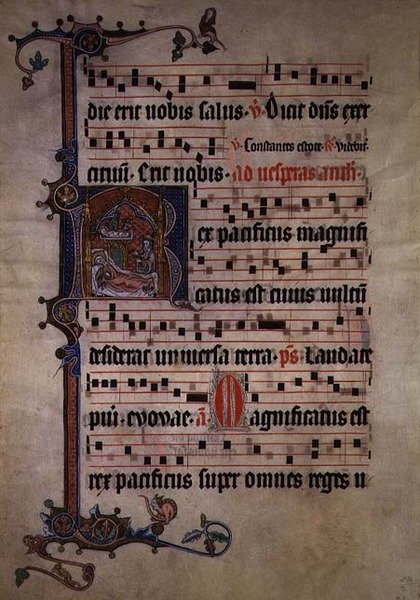 die erit uobis salus · v̄ · Dicit dn̄s exer
v̄ Constantes estote · R̄ · Videbit
cituū · Erit uobis · ad uesperas
Rex pacificus magnifi
catus est cuius uultū
desiderat uniuersa terra · ps̄ · Laudate
evovae · a̅ · Magnificatus est
rex pacificus super omnes reges u